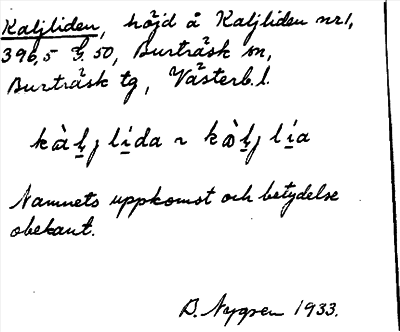 Kaljliden, höjd å Kaljliden nr 1,
396,5 G. 50, Burträsk sn,
Burträsk tg, Västerb. l.
kàl̥j lị̄da ~ kàl̥j lị̄a
Namnets uppkomst och betydelse
obekant.
D. Nygren 1933.